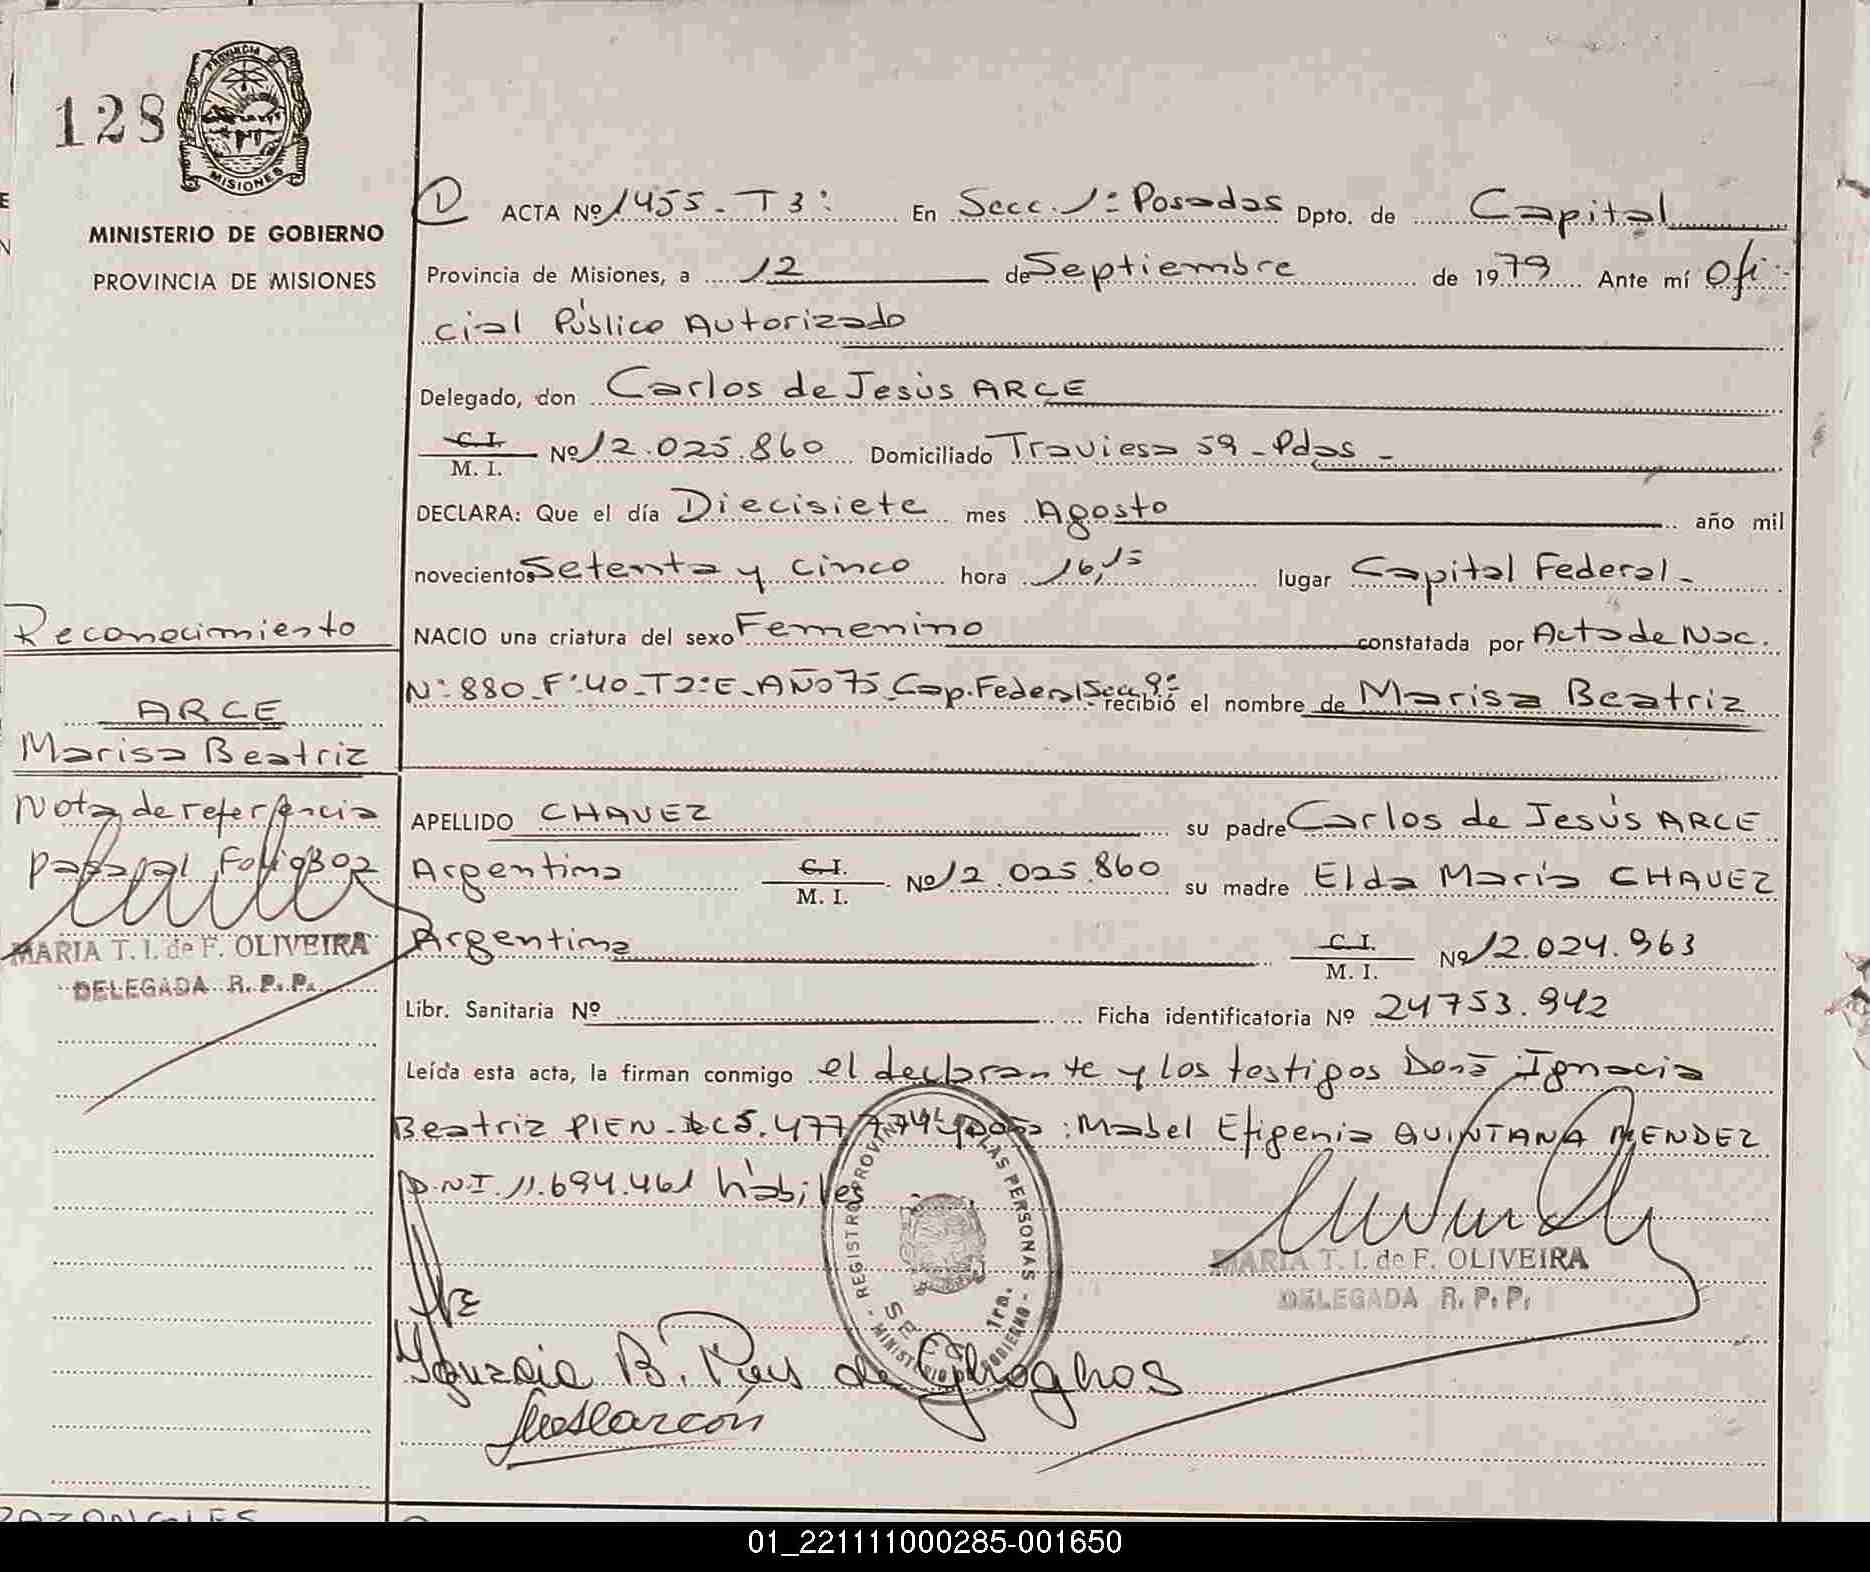 128
PROVINCIA DE
MISIONES
MINISTERIO DE GOBIERNO
PROVINCIA DE MISIONES
Reconocimiento
ARCE
Marisa Beatriz
Nota de referencia
pasa al Folio 302
MARIA T. I. de F. OLIVEIRA
DELEGADA R. P. P.
1 ACTA Nº 1455 - T 3º En Secc. 1º Posadas Dpto. de Capital
Provincia de Misiones, a 12 de Septiembre de 1979 Ante mí Ofi-
cial Público Autorizado
Delegado, don Carlos de Jesús ARCE
C. I.
M. I. Nº 12.025.860 Domiciliado Traviesa 59 - Pdas -
DECLARA: Que el día Diecisiete mes Agosto año mil
novecientos Setenta y cinco hora 16,15 lugar Capital Federal -
NACIO una criatura del sexo Femenino constatada por Acta de Nac.
Nº 880 - Fº 40 - T 2º E - AÑO 75 Cap. Federal Secc 9º recibió el nombre de Marisa Beatriz
APELLIDO CHAVEZ su padre Carlos de Jesús ARCE
Argentina C. I.
M. I. Nº 12.025.860 su madre Elda María CHAVEZ
Argentina C. I.
M. I. Nº 12.024.963
Libr. Sanitaria Nº Ficha identificatoria Nº 24753.942
Leída esta acta, la firman conmigo el declarante y los testigos Doña Ignacia
Beatriz PIEN - LC 5.477.774 y Doña: Mabel Efigenia QUINTANA MENDEZ
D.N.I. 11.694.461 hábiles
REGISTRO PROVINCIAL DE LAS PERSONAS
MINISTERIO DE GOBIERNO
1ra.
MARIA T. I. de F. OLIVEIRA
DELEGADA R. P. P.
Arce
Ignacia B. de
01_221111000285-001650